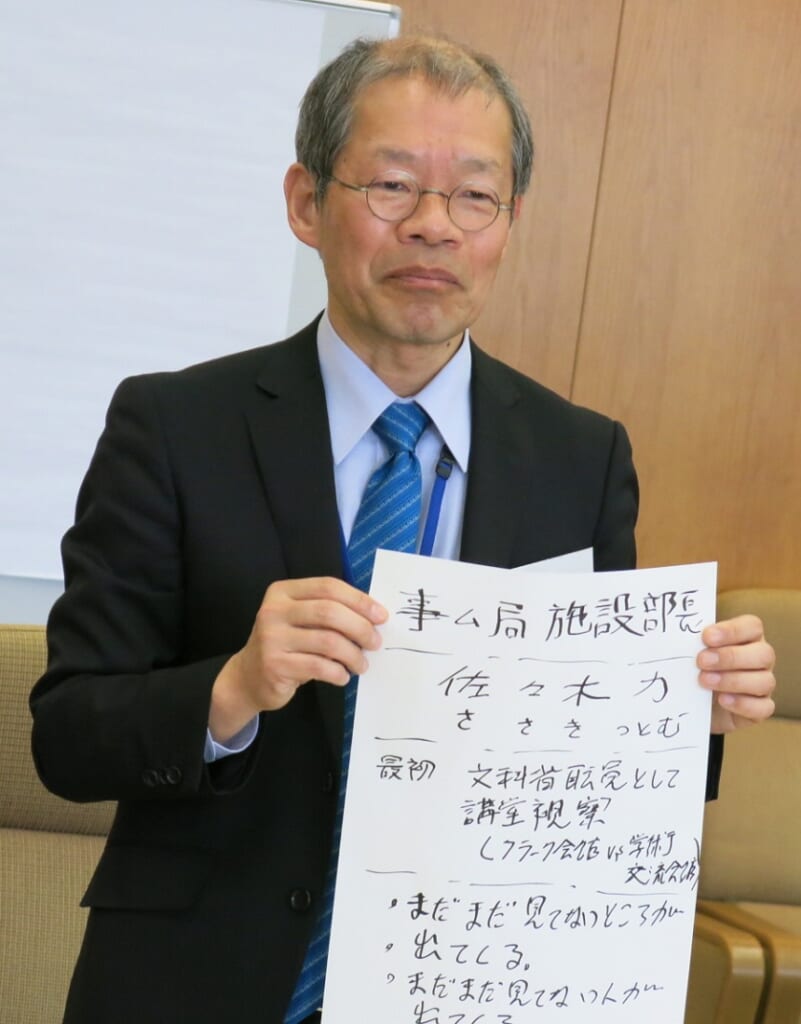 事ム局 施設部長
佐々木 力
ささき つとむ
最初 文科省転党として
講堂視察
(クラーク会館 vs 学術
交流会館)
，まだまだ見てないところが
，出てくる。
，まだまだ見てない人が
出てくる